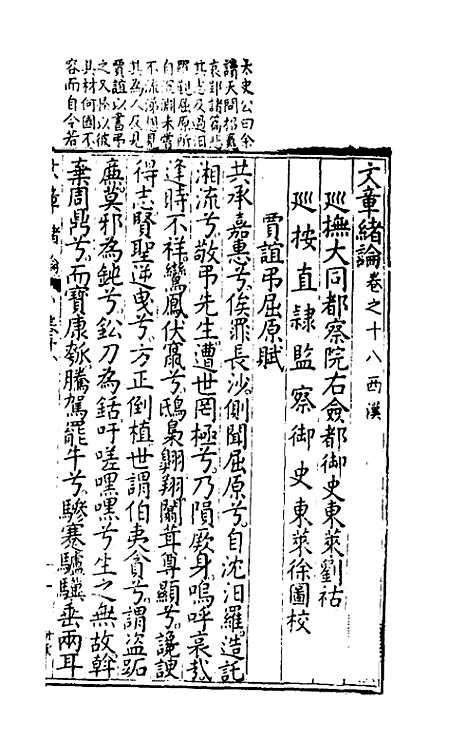 太史公曰余
讀天問招䰟
哀郢諸篇悲
其志及過汨
羅觀屈原所
自沉淵未嘗
不流涕想見
其為人及見
賈誼以書弔
之又怪以彼
其材何國不
容而自令若
文章緒論卷之十八 西漢
廵撫大同都察院右僉都御史東萊劉祜
廵按直隸監察御史東萊徐圖校
賈誼弔屈原賦
共承嘉惠兮俟罪長沙側聞屈原兮自沈汨羅造託
湘流兮敬弔先生遭世罔極兮乃隕厥身嗚呼哀哉
逢時不祥鸞鳳伏竄兮鴟梟翱翔闒茸尊顯兮讒諛
得志賢聖逆曳兮方正倒植世謂伯夷貪兮謂盗跖
廉莫邪為鈍兮鈆刀為銛吁嗟嘿嘿兮生之無故斡
棄周鼎兮而寶康瓠騰駕罷牛兮驂蹇驢驥垂兩耳